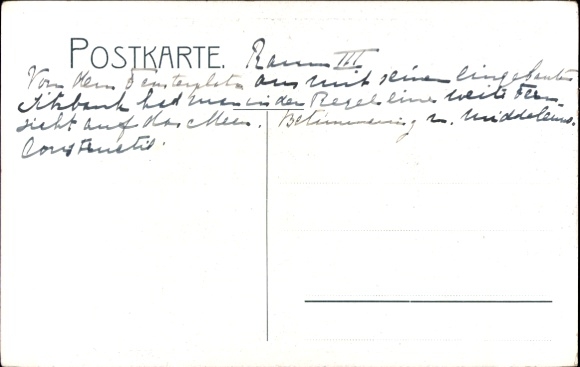 POSTKARTE. Raum III
Von dem Fensterplatz aus mit seiner eingebauten
Sitzbank hat man in der Regel eine weite Fern-
sicht auf das Meer. Betimmering u. Middelens.
Constructie.